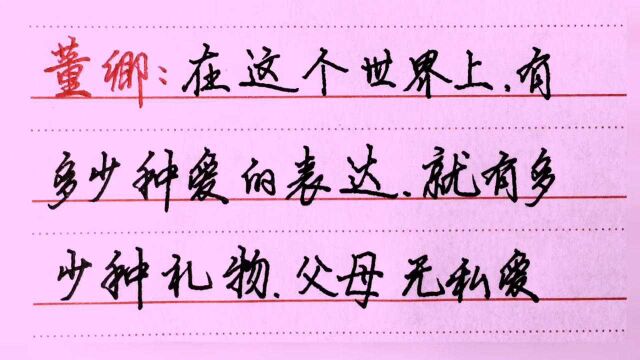 董卿:在这个世界上,有
多少种爱的表达,就有多
少种礼物,父母无私爱